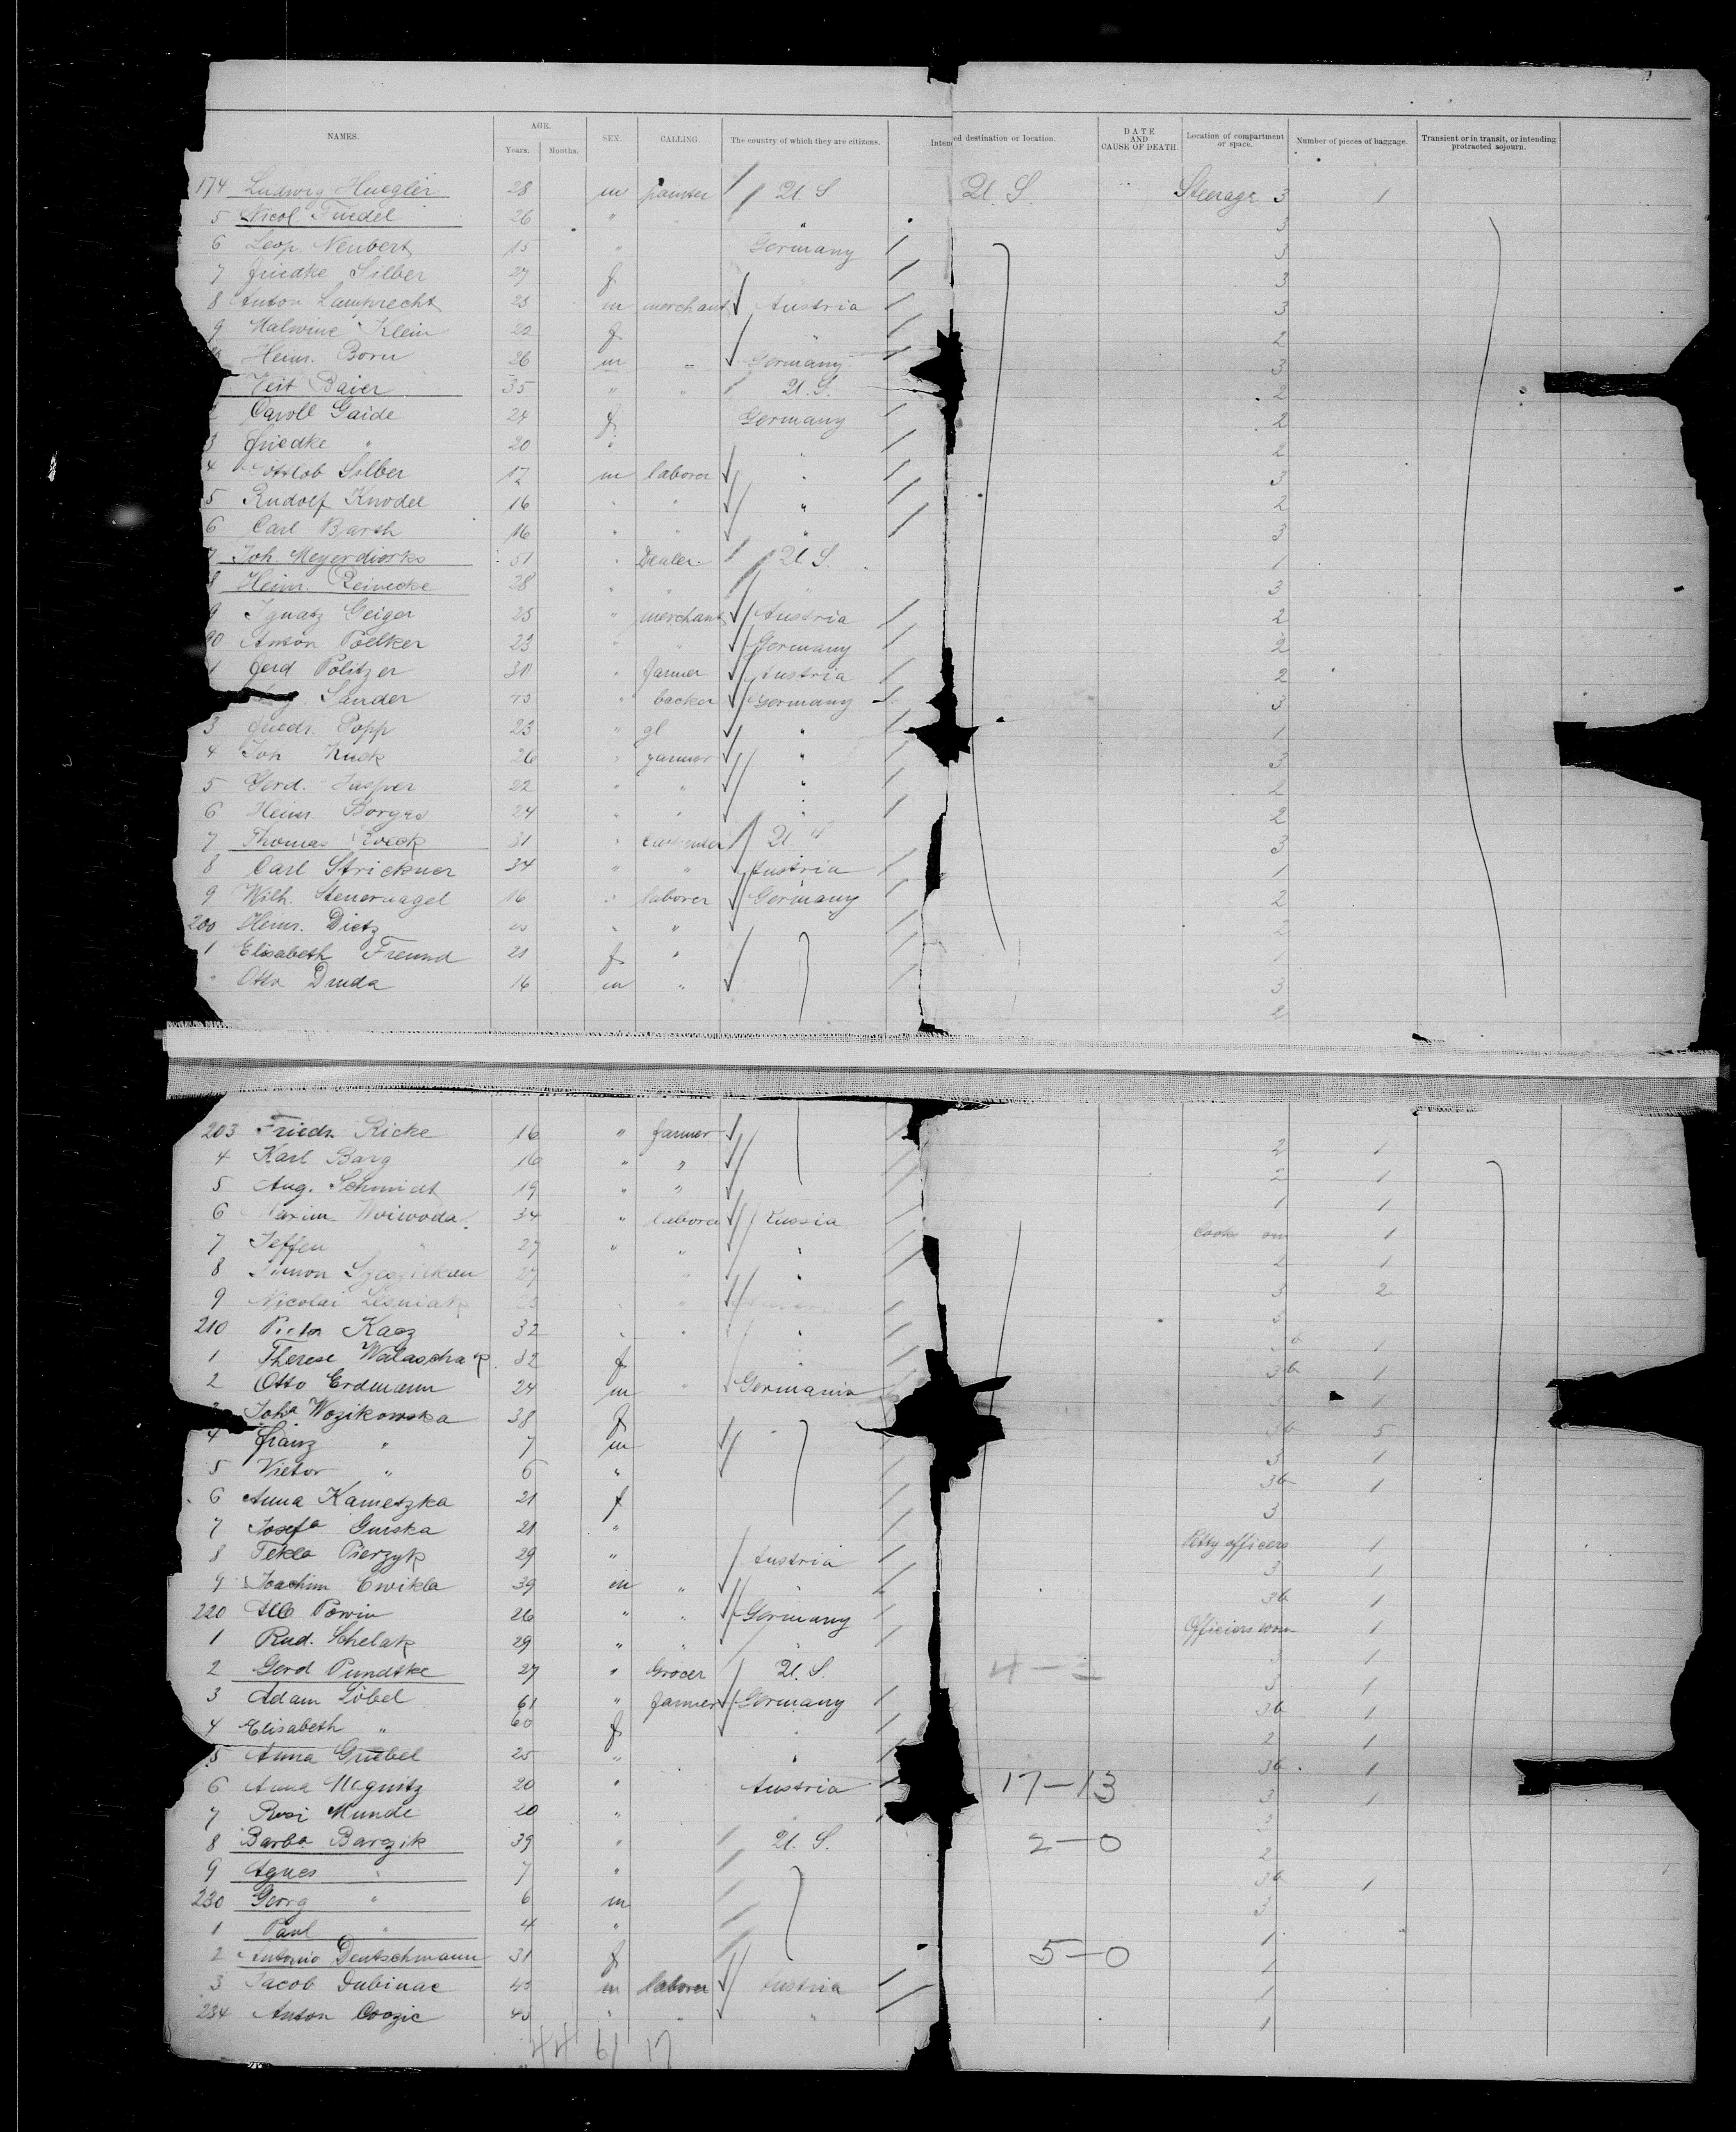 NAMES. AGE. Years. Months. SEX. CALLING. The country of which they are citizens. Intended destination or location. DATE AND CAUSE OF DEATH. Location of compartment or space. Number of pieces of baggage. Transient or in transit, or intending protracted sojourn.
174 Ludwig Huegler 28 m U. S. U. S. Steerage 3 1
5 Nicol 26 " " 3
6 Leop. Neubert 15 " Germany 3
7 Friedke Silber 27 f 3
8 Anton Lamprecht 23 m merchant Austria 3
9 Malwine Klein 22 f " 2
Heinr. Born 26 m " Germany 3
Veit Baier 35 " " U. S. 2
2 Caroll Gaide 24 f Germany 2
3 Friedke " 20 " " 2
4 Gottlob Silber 17 m laborer " 3
5 Rudolf Knodel 16 " " " 2
6 Carl Barsh 16 " " " 3
7 Joh. Meyerdierks 51 " Dealer U. S. 1
8 Heinr. Reinecke 28 " " " 3
9 Ignatz Geiger 25 " merchant Austria 2
90 Anton Poelker 23 " " Germany 2
1 Gerd Politzer 31 " farmer Austria 2
Sander " backer Germany 3
3 Friedr. Popp 23 " gl " 1
4 Joh Kuck 26 " farmer " 3
5 Gerd. Jasper 22 " " " 2
6 Heinr. Borges 24 " " " 2
7 Thomas 31 " U. S. 3
8 Carl Strickner 34 " " Austria 1
9 Wilh. Steuernagel 16 " laborer Germany 2
200 Heinr. Dietz " " " 2
1 Elisabeth Freund 21 f "
" Otto Druda 16 m " 3
2
203 Friedr. Ricke 16 " farmer 2 1
4 Karl Barg 16 " " 2 1
5 Aug. Schmidt 19 " " 1 1
6 Maxim Woiwoda 34 " laborer Russia Cooks 1
7 Jeffen " 27 " " " 2 1
8 Simon 27 " " 3 2
9 Nicolai Lesniak " " 3
210 Kacz 32 " " " 1
1 Therese Walaschak 32 f " 36 1
2 Otto Erdmann 24 m " Germania 3 1
Joha Wozikowska 38 f " 36 5
4 Franz " 7 m 3 1
5 Victor " 6 " 36 1
6 Anna Kametzka 21 f 3
7 Josefa Gurska 21 " Petty officers 1
8 Tekla Pierzyk 29 " Austria 3 1
9 Joachim Cwikla 39 m " " 36 1
220 Powin 26 " " Germany Officiers room 1
1 Rud. Schelak 29 " " " 3 1
2 Gerd Pundtke 27 " Grocer U. S. 3 1
3 Adam Löbel 61 " farmer Germany 36 1
4 Elisabeth " 60 f " 2 1
5 Anna Griebel 25 " " 36 1
6 Anna 20 " Austria 17—13 3 1
7 Rosi Munde 20 " " 3
8 Barba Barczik 39 " U. S. 2—0 2
9 Agnes " 7 " 36 1
230 Georg " 6 m 3
1 Paul " 4 " 1
2 Antonio Deutschmann 31 f 5—0 1
3 Jacob Dubinac 45 m laborer Austria 1
234 Anton 43 " " " 1
44 61 17